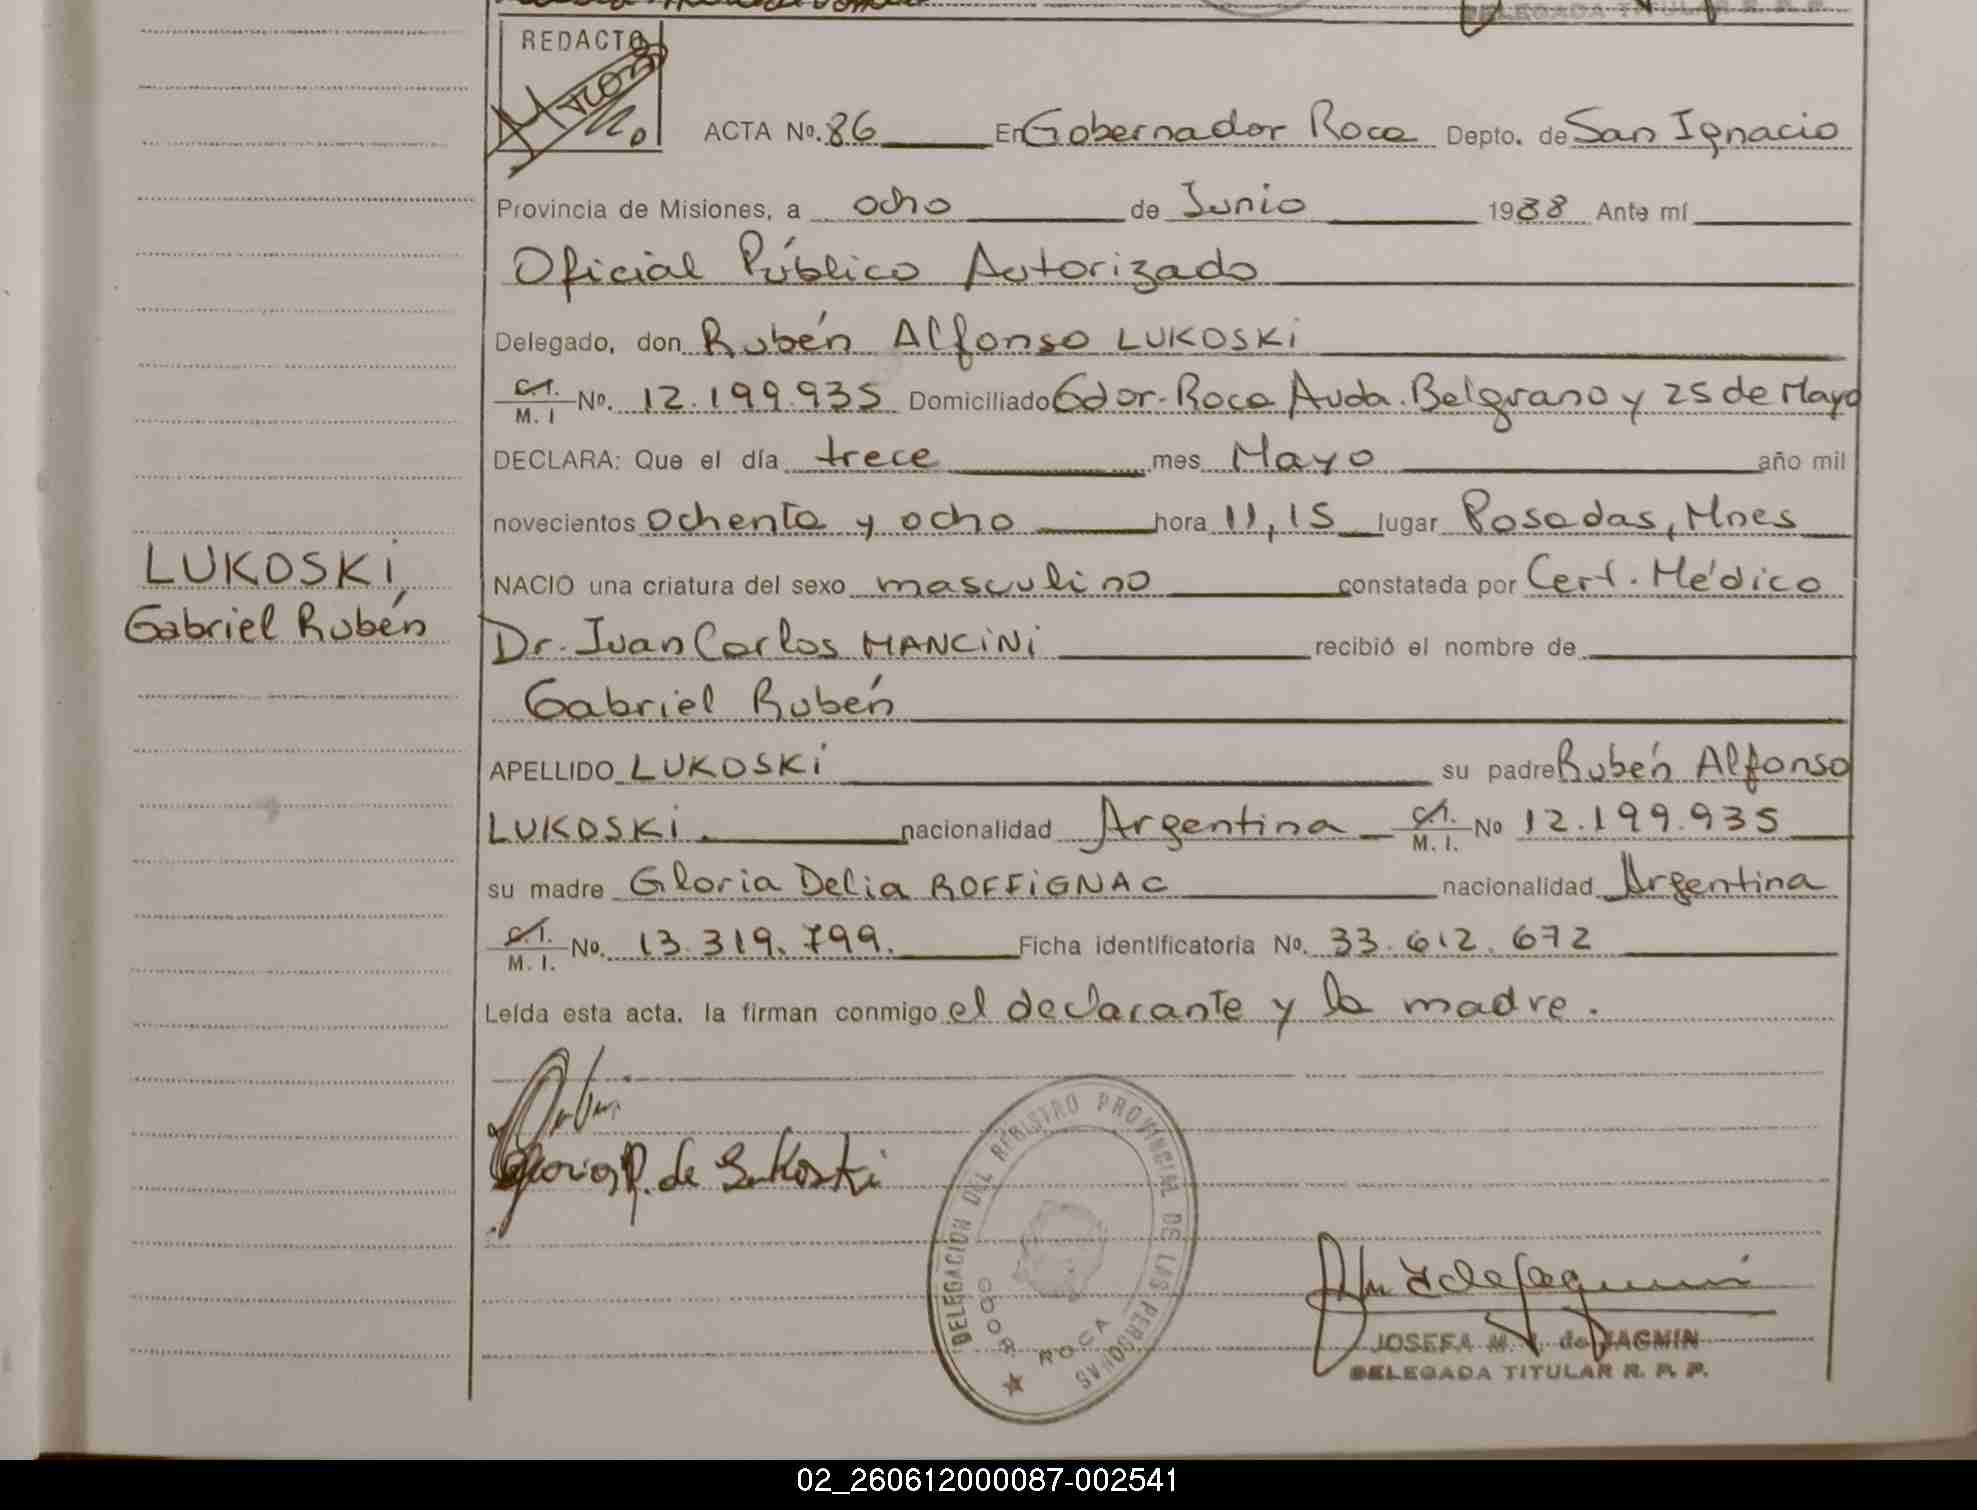 DELEGADA TITULAR R. P. P.
REDACTO
ACTA No. 86 En Gobernador Roca Depto. de San Ignacio
Provincia de Misiones, a ocho de Junio 1988 Ante mí
Oficial Público Autorizado
Delegado, don Rubén Alfonso LUKOSKi
C.I. M. I No. 12.199.935 Domiciliado Gdor. Roca Avda. Belgrano y 25 de Mayo
DECLARA: Que el día trece mes Mayo año mil
novecientos ochenta y ocho hora 11,15 lugar Posadas, Mnes
NACIO una criatura del sexo masculino constatada por Cert. Médico
Dr. Juan Carlos MANCiNi recibió el nombre de
Gabriel Rubén
APELLIDO LUKOSKi su padre Rubén Alfonso
LUKOSKi. nacionalidad Argentina C.I. M. I. No 12.199.935
su madre Gloria Delia ROFFiGNAC nacionalidad Argentina
C.I. M. I. No. 13.319.799. Ficha identificatoria No. 33.612.672
Leída esta acta. la firman conmigo el declarante y la madre.
LUKOSKi
Gabriel Rubén
Gloria R. de Lukoski
DELEGACION DEL REGISTRO PROVINCIAL DE LAS PERSONAS
GDOR. ROCA
JOSEFA M. de JAGMIN
DELEGADA TITULAR R. P. P.
02_260612000087-002541